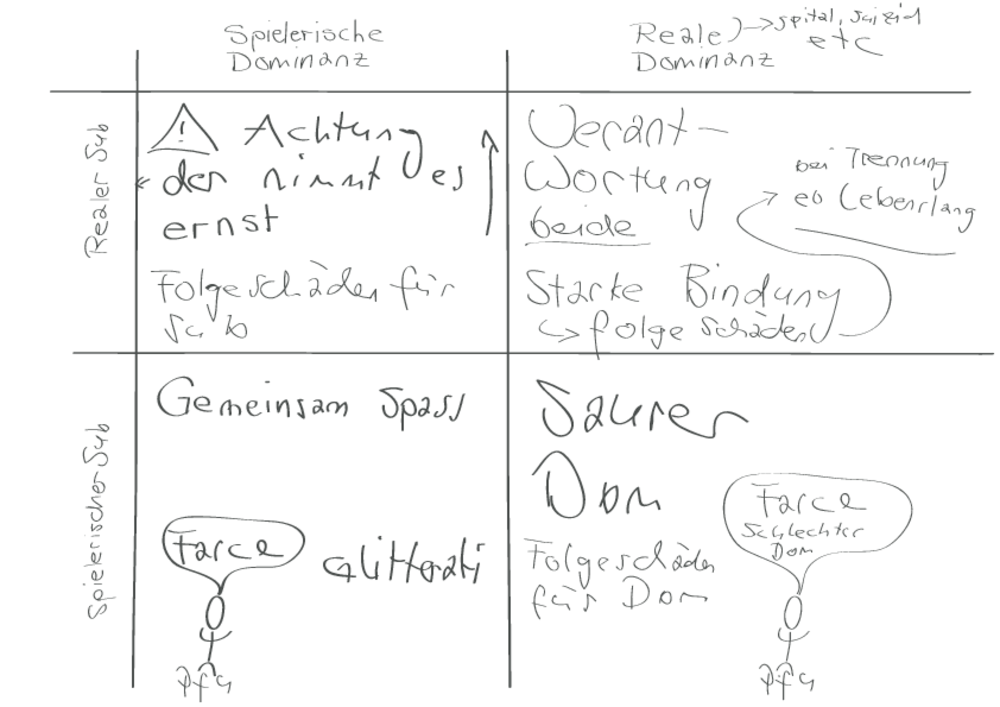 Spielerische
Dominanz
Reale → spital, suizid
etc
Dominanz
Realer Sub
! Achtung
der nimmt es
ernst
Folgeschäden für
Sub
Verant-
Wortung
beide
bei Trennung
eb Lebenslang
Starke Bindung
↳ folge schäden
Spielerischer Sub
Gemeinsam Spass
Farce
Glitterati
Pfa
Saurer
Dom
Folgeschäden
für Dom
Farce
Schlechter
Dom
Pfa